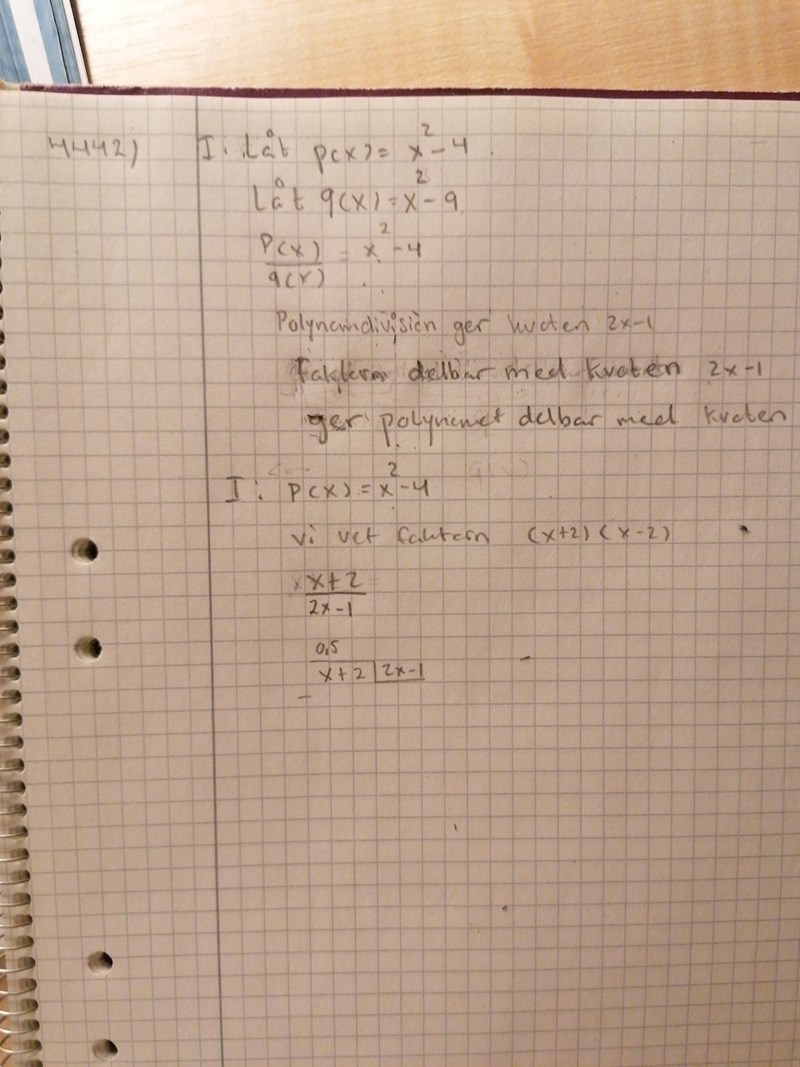 4442) I: Låt p(x) = x² - 4.
Låt q(x) = x² - 9
P(x)
q(x)
= x² - 4
Polynomdivision ger kvoten 2x-1
Faktorn delbar med kvoten 2x-1
ger polynomet delbar med kvoten
I: P(x) = x² - 4
vi vet faktorn (x+2)(x-2)
x+2
2x-1
0,5
x+2 2x-1
-